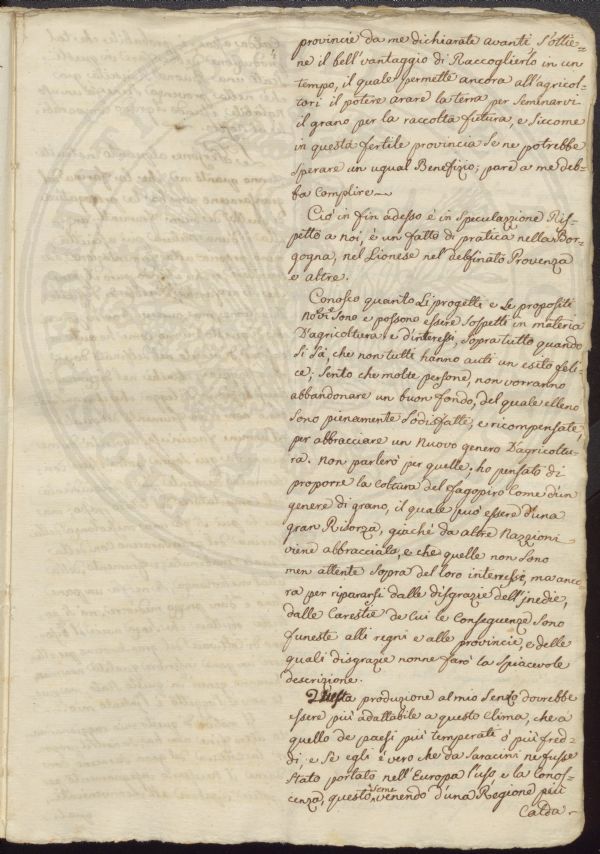 provincie da me dichiarate avanti, s'ottie=
ne il bell'vantaggio di Raccoglierlo in un
tempo, il quale permette ancora all'agricol=
tori il potere arare la terra per seminarvi
il grano per la raccolta futura, e siccome
in questa fertile provincia se ne potrebbe
sperare un ugual Benefizio; pare a me deb=
ba complire~
Ciò in fin adesso è in speculazzione Ris=
petto a noi, è un fatto di pratica nella Bor=
gogna, nel Lionese nel delfinato Provenza
e altre.
Conosco quanto Li progetti e Le proposite
novi sono e possono essere sospetti in materia
D'agricoltura e d'interessi, sopra tutto quando
si sà, che non tutti hanno auti un esito feli=
ce; sento che molte persone, non vorranno
abbandonare un buon fondo, del quale elleno
sono pienamente sodisfatte, e ricompensate,
per abbracciare un nuovo genero D'agricoltu=
ra. non parlerò per quelle. ho pensato di
proporre la coltura del fagopiro come d'un
genere di grano, il quale può essere d'una
gran Risorza, giaché da altre Nazzioni
viene abbracciata, e che quelle non sono
men attente sopra del loro interresse, ma anco
ra per ripararsi dalle disgrazie dell'inedie,
dalle Carestie de Cui le Conseguenze sono
funeste alli regni e alle provincie, e delle
quali disgrazie nonne farò la spiacevole
descrizione.
Questa produzione al mio senzo dovrebbe
essere più adattabile a questo Clima, che a
quello de paesi più temperate ò più fred=
di, e se egli è vero che da saracini ne fusse
stato portato nell'Europa l'uso e la Conos=
cenza, questo seme venendo d'una Regione più
Calda~